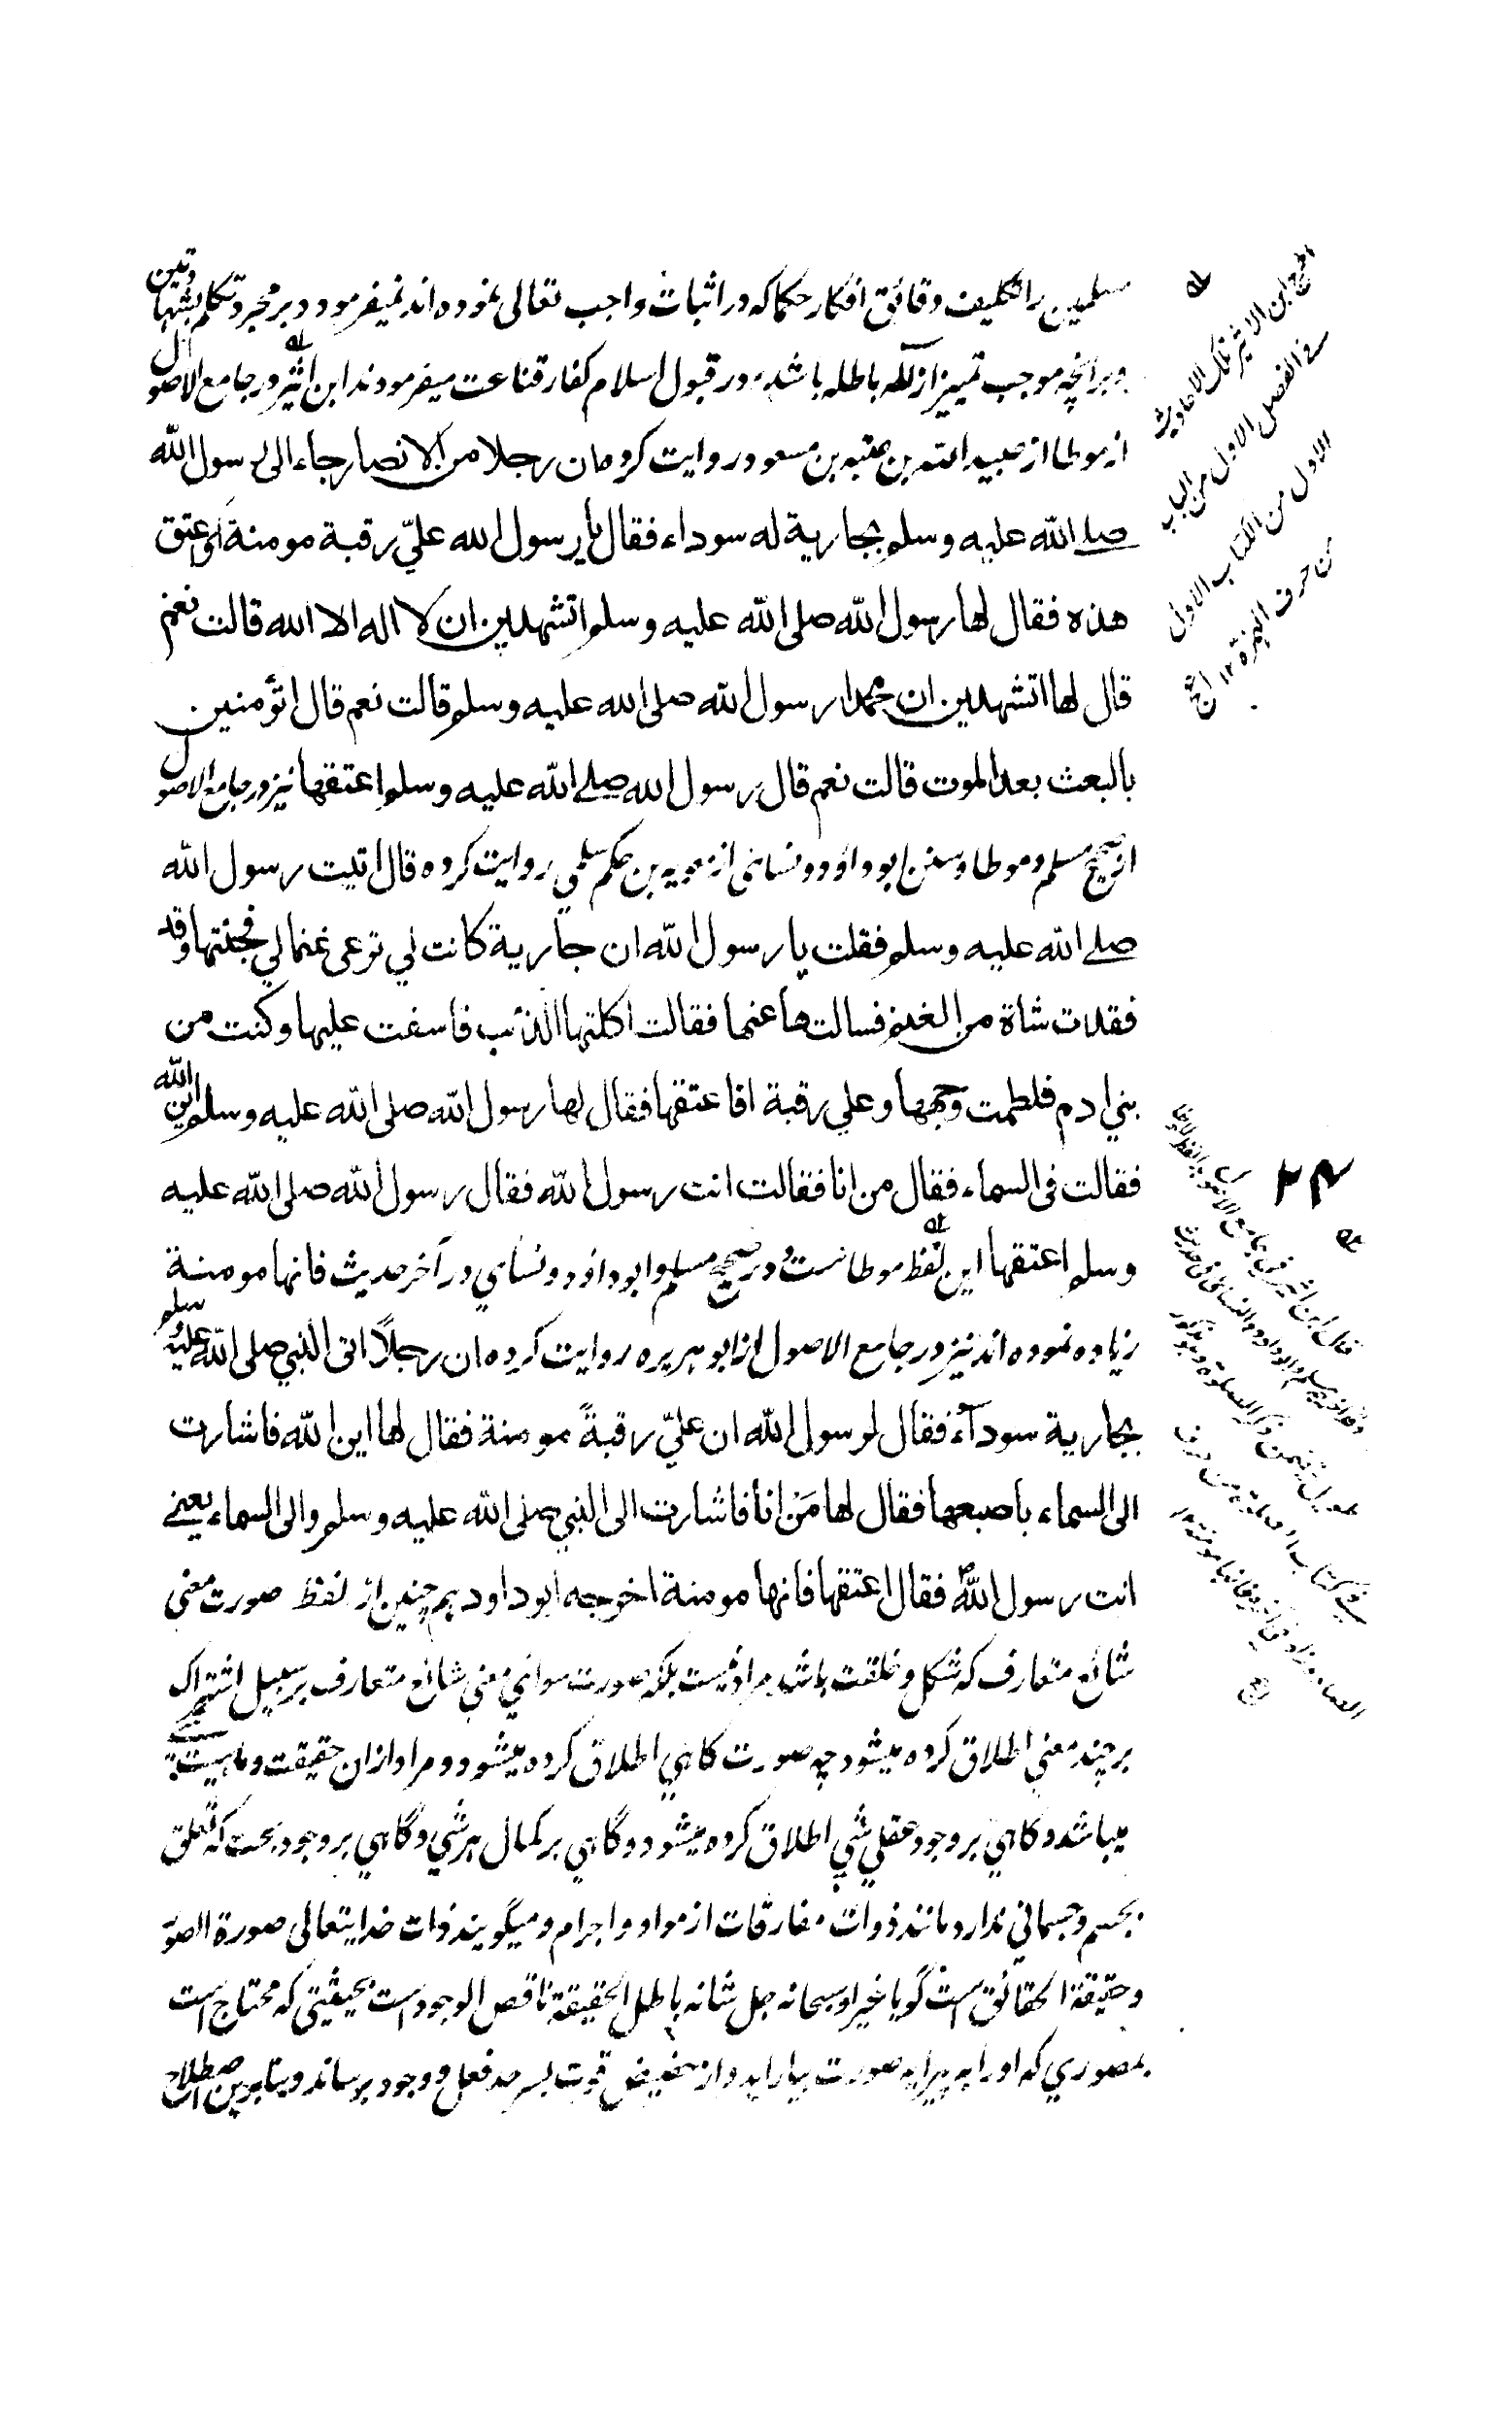 مسلمین را تکلیف دقائق افکار حکما که در اثبات واجب تعالی نموده اند نمیفرمودد بر مجرد تکلم بشهادتین
و بر آنچه موجب تمییز از آلهه باطله باشد در قبول اسلام کفار قناعت میفرمودند ابن اثیر در جامع الاصول
از موطا از عبید الله بن عتبه بن مسعود روایت کرد ان رجلا من الانصار جاء الی رسول الله
صلے الله علیه وسلم بجاریة له سوداء فقال یا رسول الله علیّ رقبة مومنة أفاعتق
هذه فقال لها رسول الله صلی الله علیه وسلم اتشهدین ان لا اله الا الله قالت نعم
قال لها اتشهدین ان محمدا رسول الله صلی الله علیه وسلم قالت نعم قال اتؤمنین
بالبعث بعد الموت قالت نعم قال رسول الله صلے الله علیه وسلم اعتقها نیز در جامع الاصول
از صحیح مسلم و موطا و سنن ابو داؤد و نسائی از معویه بن حکم سلمي روایت کرده قال اتیت رسول الله
صلے الله علیه وسلم فقلت یا رسول الله ان جاریة کانت لي ترعی غنما لي فجئتها وقد
فقدت شاة من الغنم فسالتها عنها فقالت اکلتها الذئب فاسفت علیها وکنت من
بني ادم فلطمت وجهها وعلي رقبة افاعتقها فقال لها رسول الله صلی الله علیه وسلم این الله
فقالت فی السماء فقال من انا فقالت انت رسول الله فقال رسول الله صلی الله علیه
وسلم اعتقها این لفظ موطا ست و در صحیح مسلم و ابو داؤد و نسأي در آخر حدیث فانها مومنة
زیاده نموده اند نیز در جامع الاصول از ابو هریره روایت کرده ان رجلًا اتی النبي صلی الله علیه وسلم
بجاریة سودآء فقال لرسول الله ان علیّ رقبةً مومنة فقال لها این الله فاشارت
الی السماء باصبعها فقال لها مَنْ انا فاشارت الی النبي صلی الله علیه وسلم والی السماء یعنے
انت رسول الله فقال اعتقها فانها مومنة اخرجه ابو داود همچنین از لفظ صورت معني
شائع متعارف که شکل و خلقت باشد مراد نیست بلکه صورت سواي معني شائع متعارف بر سبیل اشتراک
بر چند معني اطلاق کرده میشود چه صورت گاهي اطلاق کرده میشود و مراد ازان حقیقت و ماهیت
میباشد و گاهي بر وجود عقلي شي اطلاق کرده میشود و گاهي بر کمال هر شي و گاهي بر وجود بحت که تعلق
بجسم و جسمانی ندارد مانند ذوات مفارقات از مواد و اجرام و میگویند ذات خدایتعالی صورة الصور
و حقیقة الحقائق است گویا غیر او سبحانه جل شانه باطل الحقیقة ناقص الوجود است بحیثیتی که محتاج است
بمصوري که او را به پیرایه صورت بیاراید و از حضیض قوت بسرحد فعل و وجود برساند و بنابرین اصطلاح
ابن الاثیر تلک الاحادیث
فی الفصل الاول من الباب
الاول من الکتاب الاول
من حرف الهمزة ۱۲
۲۴